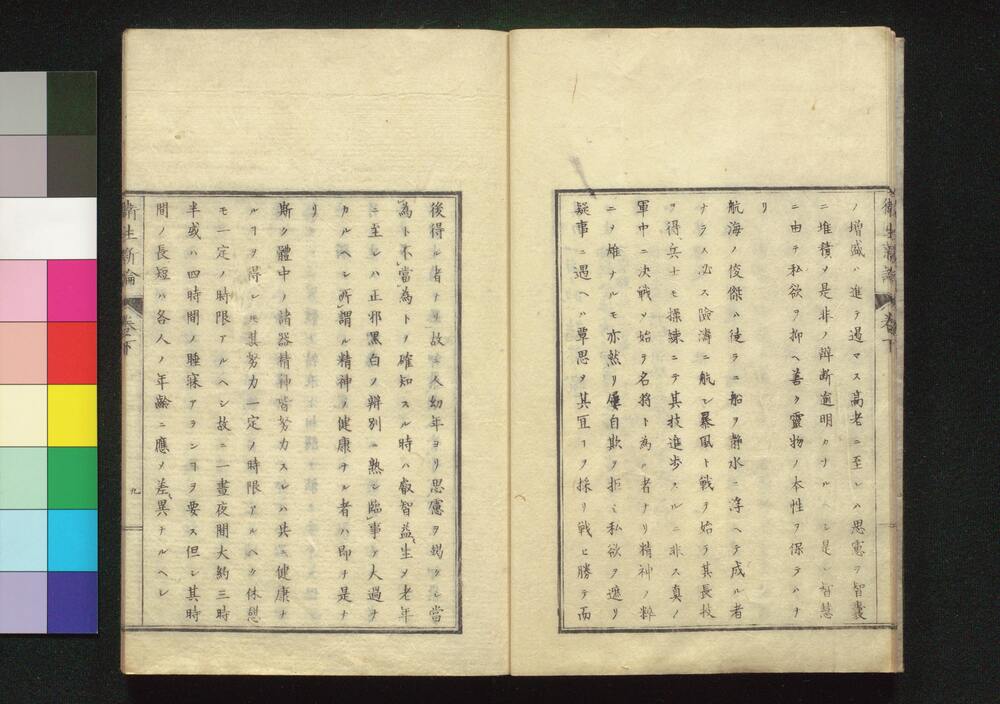 衛生新論 卷下
ノ增盛ハ進テ過マス高老ニ至レハ思慮テ智囊
ニ堆積メ是非ノ辨斷逾明カナルヘシ是レ智慧
ニ由テ私欲ヲ抑ヘ善ク靈物ノ本性ヲ保テハナ
リ
航海ノ俊傑ハ徒ラニ船ヲ靜水ニ浮ヘテ成ル者
ナラス必ス險濤ニ航シ暴風ト戰ヲ始テ其長技
ヲ得、兵士モ操練ニテ其技進歩スルニ非ス真ノ
軍中ニ決戰メ始テ名將ト為ル者ナリ精神ノ粹
ニヲ雄ナルモ亦然リ屢自欺ヲ拒ミ私欲ヲ遮リ
疑事ニ遇ヘハ覃思メ其宜ヿヲ採リ戰ヒ勝テ而
後得ル者ナリ故ニ人幼年ヨリ思慮ヲ竭クシ當
為ト不當為トヲ確知スル時ハ叡智益生メ老年
ニ至レハ正邪黑白ノ辨別ニ熟シ臨事テ大過ナ
カルヘシ所謂ル精神ノ健康ナル者ハ即チ是ナ
リ
斯ク體中ノ諸器精神皆努力スレハ共ニ健康ナ
ルヿヲ得レ圧其努力一定ノ時限アルヘク休憩
モ一定ノ時限アルヘシ故ニ一晝夜間大約三時
半或ハ四時間ノ睡寐アランヿヲ要ス但シ其時
間ノ長短ハ各人ノ年齡ニ應メ差異ナルヘシ
衛生新論 卷下 九